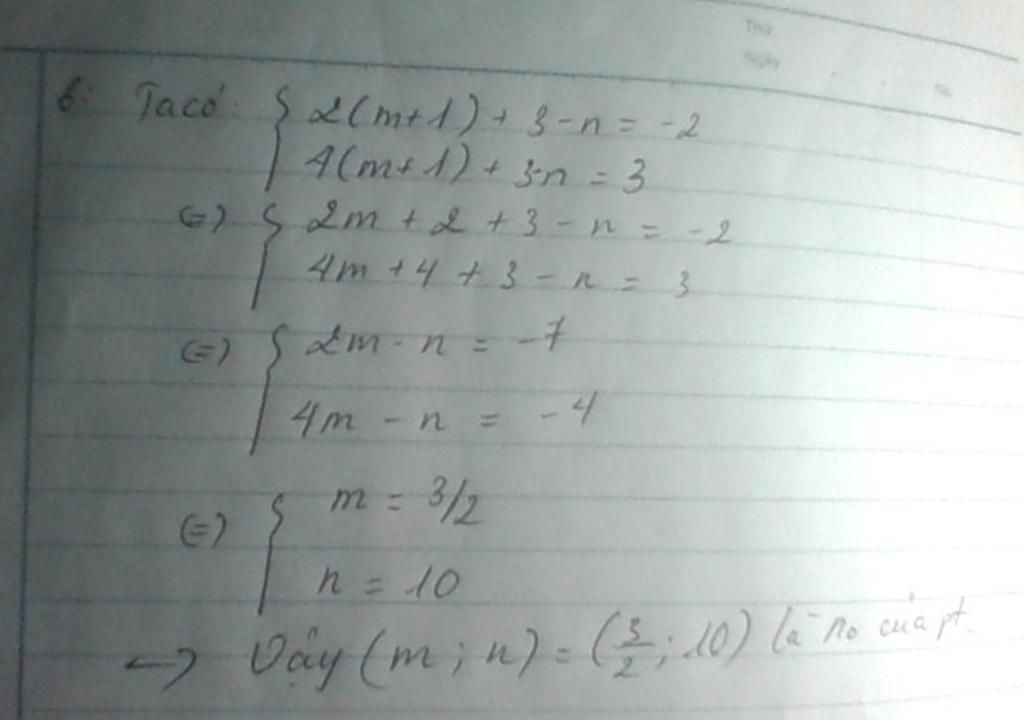 Thứ
Ngày
6: Ta có: { 2(m+1) + 3-n = -2
4(m+1) + 3-n = 3
(=) { 2m + 2 + 3 - n = -2
4m + 4 + 3 - n = 3
(=) { 2m - n = -7
4m - n = -4
(=) { m = 3/2
n = 10
↪ Vậy (m ; n) = (3/2 ; 10) là no của pt.